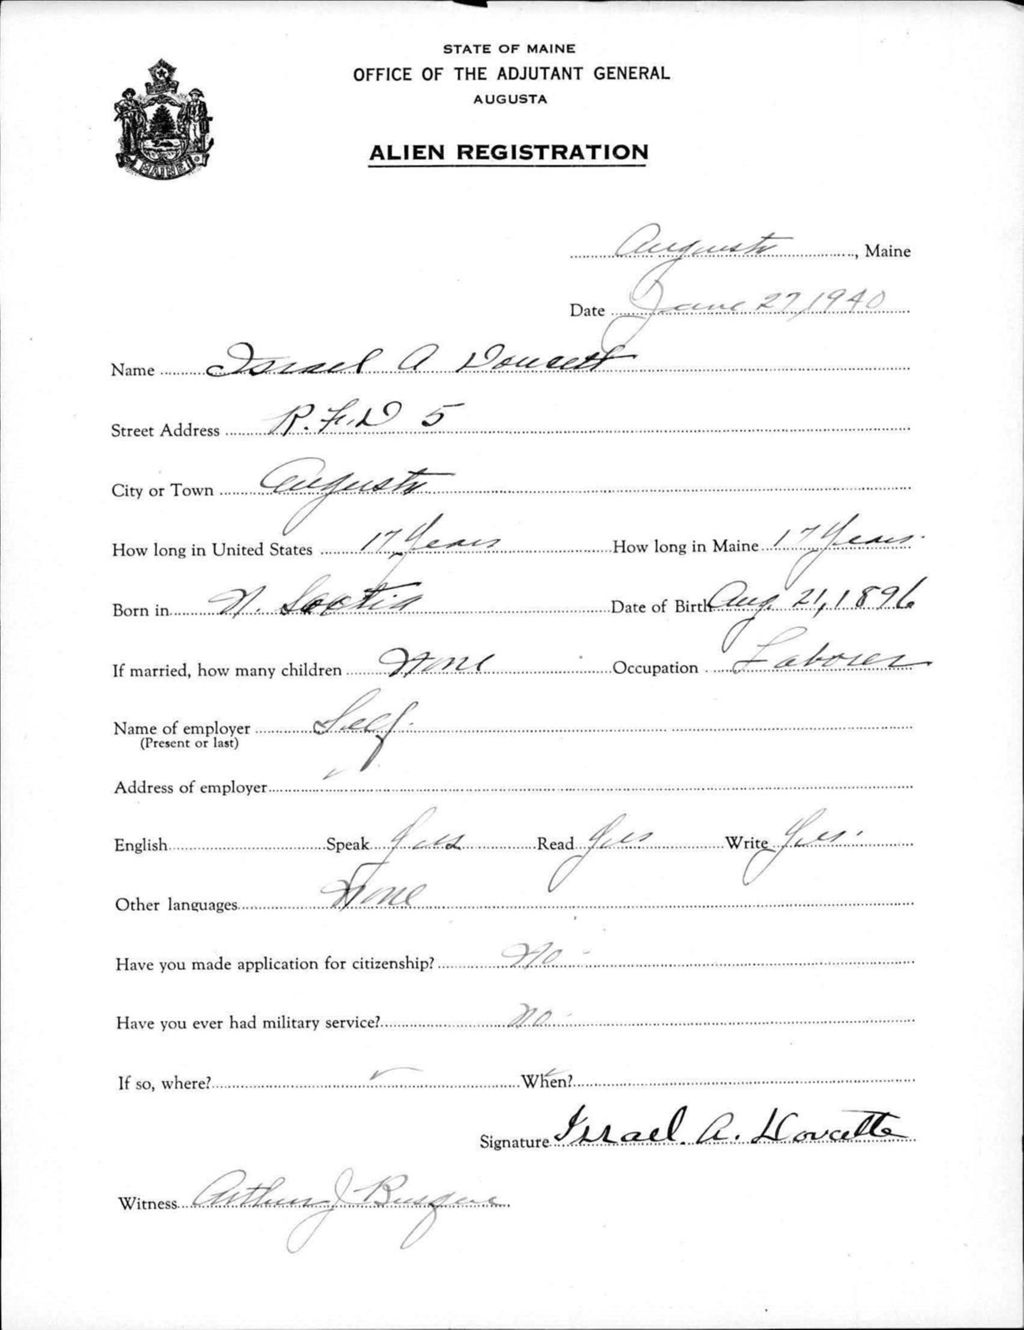 STATE OF MAINE
OFFICE OF THE ADJUTANT GENERAL
AUGUSTA
ALIEN REGISTRATION
MAINE
Augusta, Maine
Date June 27, 1940
Name Israel A Doucett
Street Address R.F.D 5
City or Town Augusta
How long in United States 17 Years How long in Maine 17 Years.
Born in N. Scotia Date of Birth Aug 21, 1896
If married, how many children None Occupation Laborer
Name of employer Self.
(Present or last)
Address of employer
English Speak Yes Read Yes Write Yes.
Other languages None
Have you made application for citizenship? No -
Have you ever had military service? No -
If so, where? When?
Signature Israel. A. Doucette
Witness Arthur J